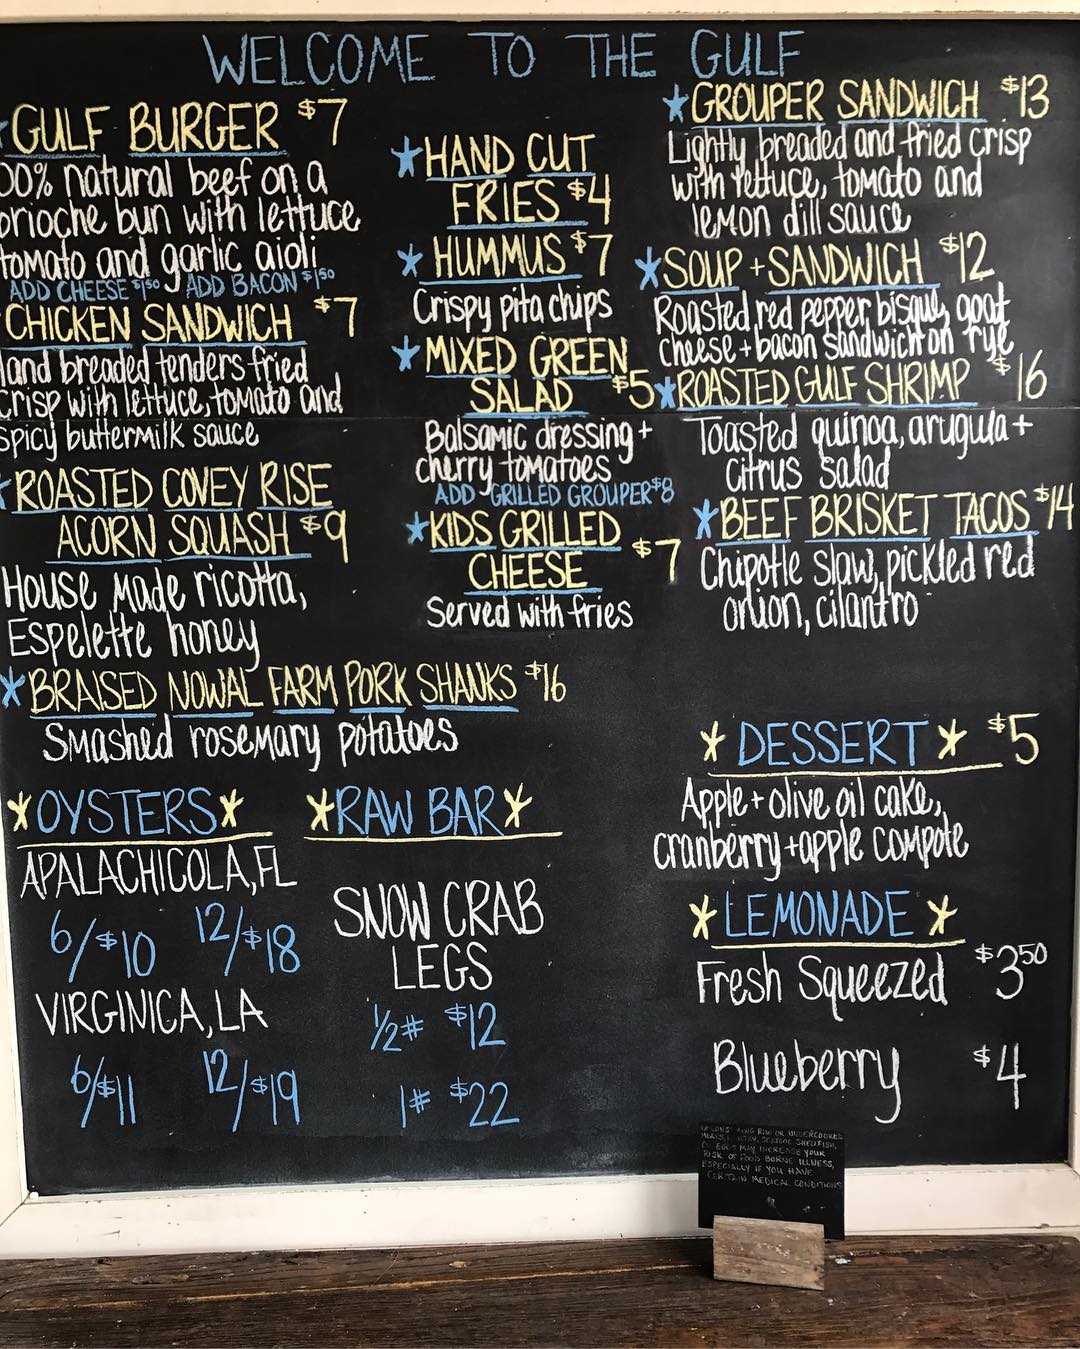 WELCOME TO THE GULF
GULF BURGER $7
00% natural beef on a
brioche bun with lettuce
tomato and garlic aioli
ADD CHEESE $1.50 ADD BACON $1.50
CHICKEN SANDWICH $7
Hand breaded tenders fried
crisp with lettuce, tomato and
spicy buttermilk sauce
ROASTED COVEY RISE
ACORN SQUASH $9
House Made ricotta,
Espelette honey
BRAISED NOWAL FARM PORK SHANKS $16
Smashed rosemary potatoes
HAND CUT
FRIES $4
HUMMUS $7
Crispy pita chips
MIXED GREEN
SALAD $5
Balsamic dressing +
cherry tomatoes
ADD GRILLED GROUPER $8
KIDS GRILLED
CHEESE $7
Served with fries
GROUPER SANDWICH $13
Lightly breaded and fried crisp
with lettuce, tomato and
lemon dill sauce
SOUP + SANDWICH $12
Roasted red pepper bisque, goat
cheese + bacon sandwich on rye
ROASTED GULF SHRIMP $16
Toasted quinoa, arugula +
citrus salad
BEEF BRISKET TACOS $14
Chipotle slaw, pickled red
onion, cilantro
OYSTERS
APALACHICOLA, FL
6/$10 12/$18
VIRGINICA, LA
6/$11 12/$19
RAW BAR
SNOW CRAB
LEGS
1/2# $12
1# $22
DESSERT $5
Apple + olive oil cake,
cranberry + apple compote
LEMONADE
Fresh Squeezed $3.50
Blueberry $4
RAW OR UNDERCOOKED
MEATS, POULTRY, SEAFOOD, SHELLFISH,
OR EGGS MAY INCREASE YOUR
RISK OF FOOD BORNE ILLNESS,
ESPECIALLY IF YOU HAVE
CERTAIN MEDICAL CONDITIONS